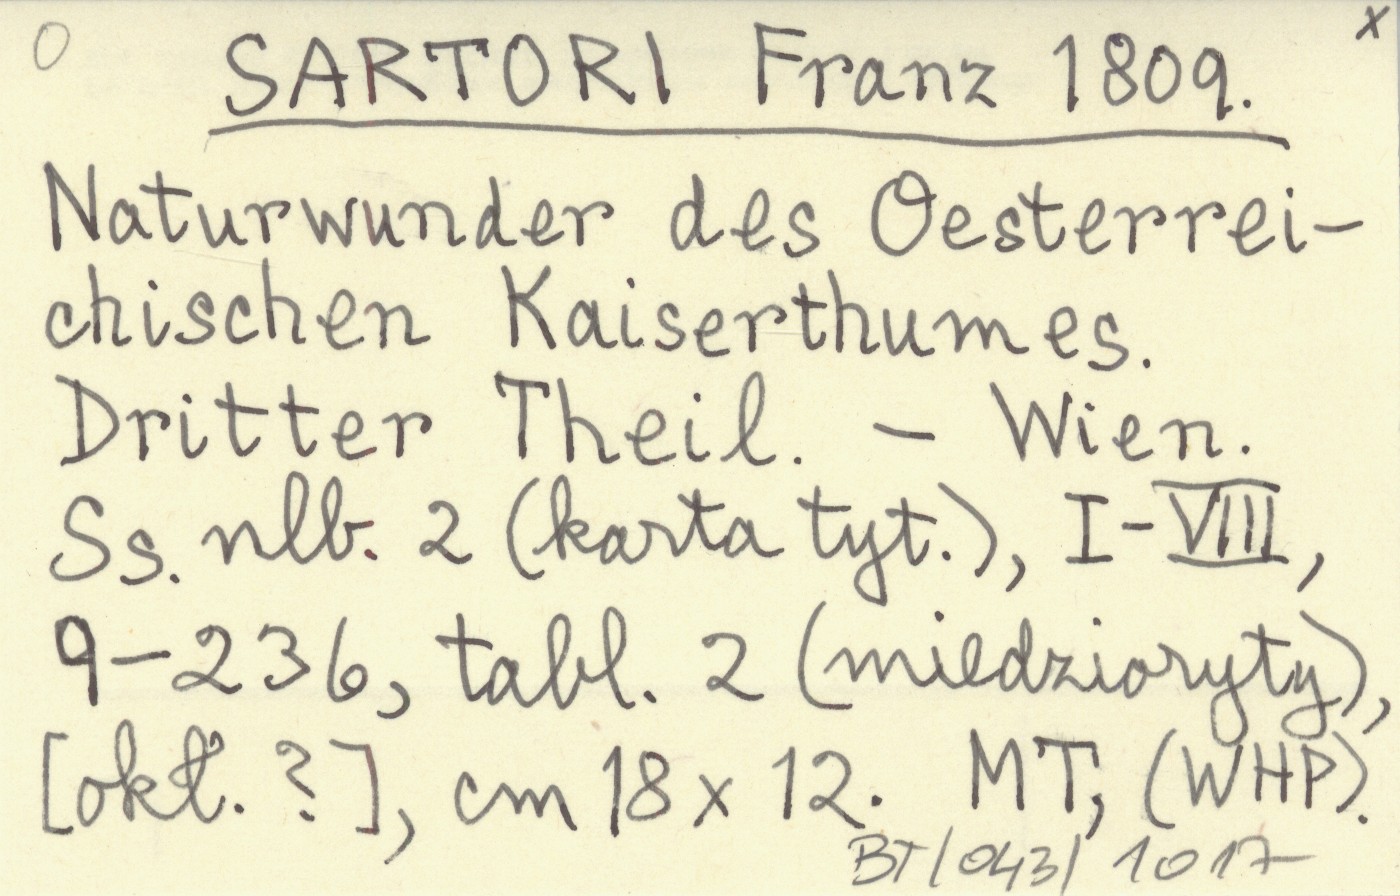 O
x
SARTORI Franz 1809.
Naturwunder des Oesterrei-
chischen Kaiserthumes.
Dritter Theil. – Wien.
Ss. nlb. 2 (karta tyt.), I-VIII,
9-236, tabl. 2 (miedzioryty),
[okł. ?], cm 18 x 12. MT, (WHP).
BT/043/1017